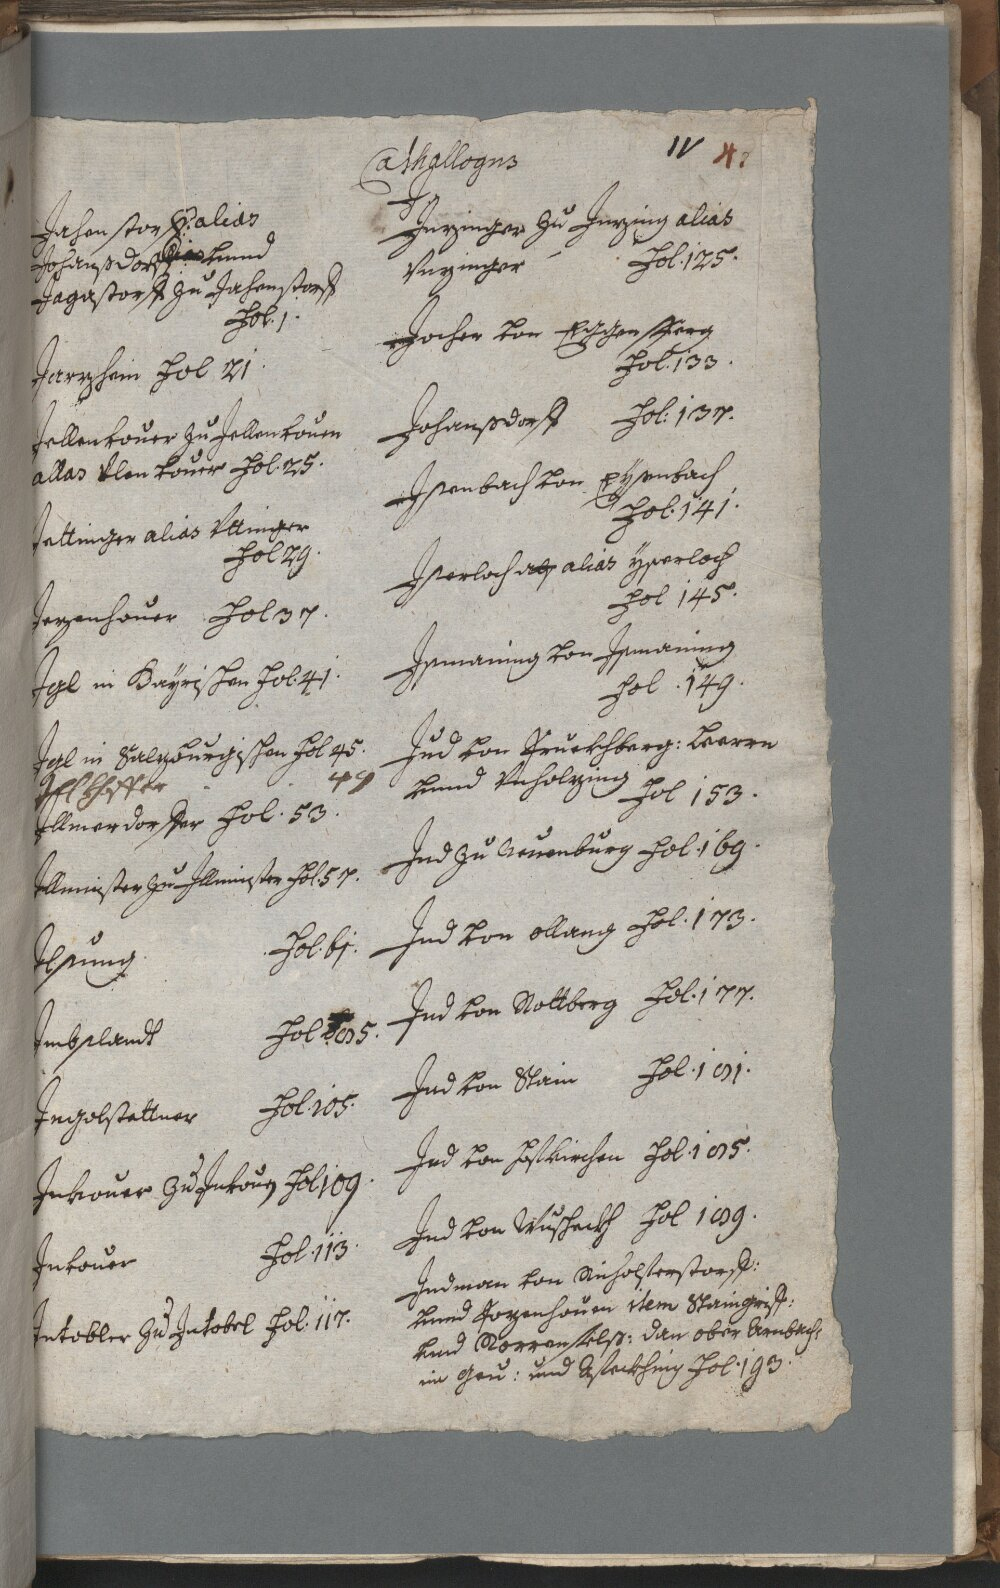 Cathallogus
IV
Jahenstorf: alias
Johanßdorf vnnd
Jagastorff zu Jahenstorff
Fol. 1.
Jarzhein Fol 21.
Jellenkouer zu Jellenkouen
alias Vlenkouer Fol. 25.
Jettinger alias Vttinger
Fol 29.
Jezenhouer Fol 37.
Jgl in Bayrischen Fol. 41.
Jgl in Salzburgischen Fol 45.
49
Jllmerdorffer Fol. 53.
Jllminster zu Jllminster Fol. 57.
Jlsung Fol. 61.
Jmbslandt Fol
Jngolstettner Fol. 105.
Jnkouer zu Jnkoun Fol 109.
Jnkouer Fol. 113.
Jntobler zu Jntobel Fol. 117.
Jnzinger zu Jnzing alias
Vnzinger Fol. 125.
Jocher von Eggersperg
Fol. 133.
Johanßdorff Fol: 137.
Jsenbach von Eysenbach
Fol. 141.
Jserloch alias Yserloch
Fol 145.
Jsmaning von Jsmaning
Fol. 149.
Jud von Pruckhberg:
vnnd Vnholzing Fol 153.
Jud zu Neuenburg Fol. 169.
Jud von ollang Fol. 173.
Jud von Rottberg Fol. 177.
Jud von Stain Fol. 181.
Jud von Fol. 185.
Jud von Fol 189.
Judman von
vnnd item Staingriff:
vnnd dan ober Arnbach:
im Geu: und Steckhing Fol. 193.